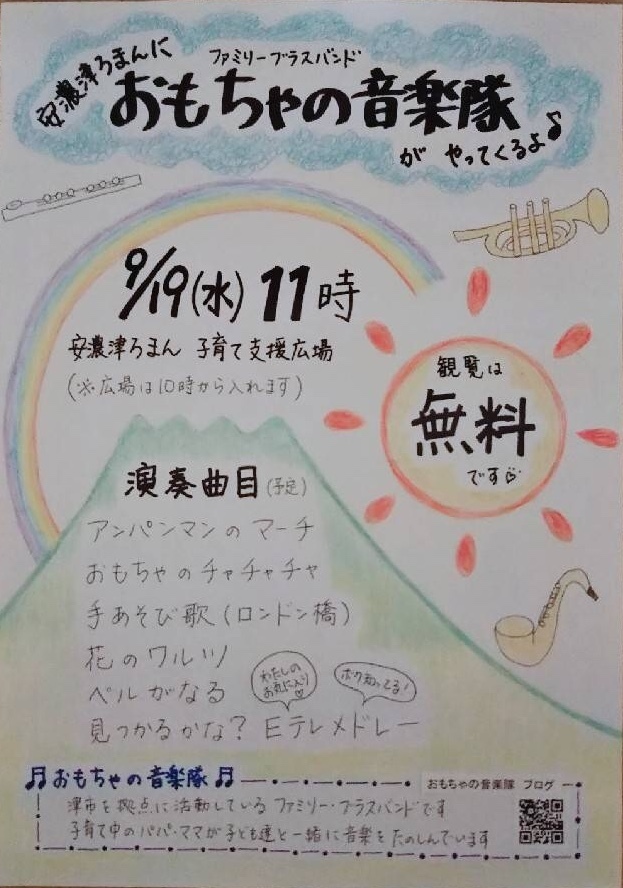 安濃津ろまんに
ファミリーブラスバンド
おもちゃの音楽隊
が やってくるよ♪
9/19(水) 11時
安濃津ろまん 子育て支援広場
(※広場は10時から入れます)
観覧は
無料
です
演奏曲目(予定)
アンパンマンのマーチ
おもちゃのチャチャチャ
手あそび歌(ロンドン橋)
花のワルツ
ベルがなる
わたしの
お気に入り♡
ボク知ってる!
見つかるかな? Eテレメドレー
♫おもちゃの音楽隊♫
おもちゃの音楽隊 ブログ
津市を拠点に活動しているファミリー・ブラスバンドです
子育て中のパパ・ママが子ども達と一緒に音楽をたのしんでいます